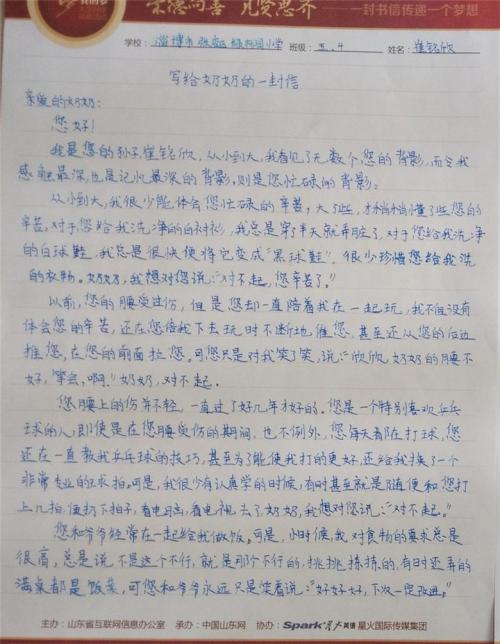 崇德向善 见贤思齐——一封书信传递一个梦想
学校：淄博市张店 校园小学 班级：五.4 姓名：崔铭欣
写给奶奶的一封信
亲爱的奶奶：
您好！
我是您的孙子崔铭欣，从小到大，我看见了无数个您的背影，而令我
感触最深，也是记忆最深的背影，则是您忙碌的背影。
从小到大，我很少能体会您忙碌的辛苦，大了些，才稍稍懂了些您的
辛苦，对于您给我洗净的白衬衫，我总是穿了半天就弄脏了，对于您给我洗净
的白球鞋，我总是很快便将它变成“黑球鞋”，很少珍惜您给我洗
的衣物。奶奶，我想对您说：“对不起，您辛苦了。”
以前，您的腰受过伤，但是您却一直陪着我在一起玩，我不但没有
体会您的辛苦，还在您陪我下去玩时不断地催您，甚至还从您的后边
推您，在您的前面拉您。可您只是对我笑了笑，说：“欣欣，奶奶的腰不
好，等会，啊。”奶奶，对不起。
您腰上的伤并不轻，一直过了好几年才好的。您是一个特别喜欢乒乓
球的人，即使是在您腰受伤的期间，也不例外，您每天都在打球，您
还在一直教我乒乓球的技巧，甚至为了能使我打的更好，还给我换了一个
非常专业的球拍。可是，我很少有认真学的时候，有时甚至就是随便和您打
上几拍，便扔下拍子，看电脑，看电视去了，奶奶，我想对您说：“对不起。”
您和爷爷经常在一起给我做饭。可是，小时候，我对食物的要求总是
很高，总是说不是这个不行，就是那个不行的，挑挑拣拣的，有时还弄的
满桌都是饭菜，可您和爷爷永远只是笑着说：“好好好，下次一定改进。”
主办：山东省互联网信息办公室 承办：中国山东网 协办：Spark星火英语 星火国际传媒集团